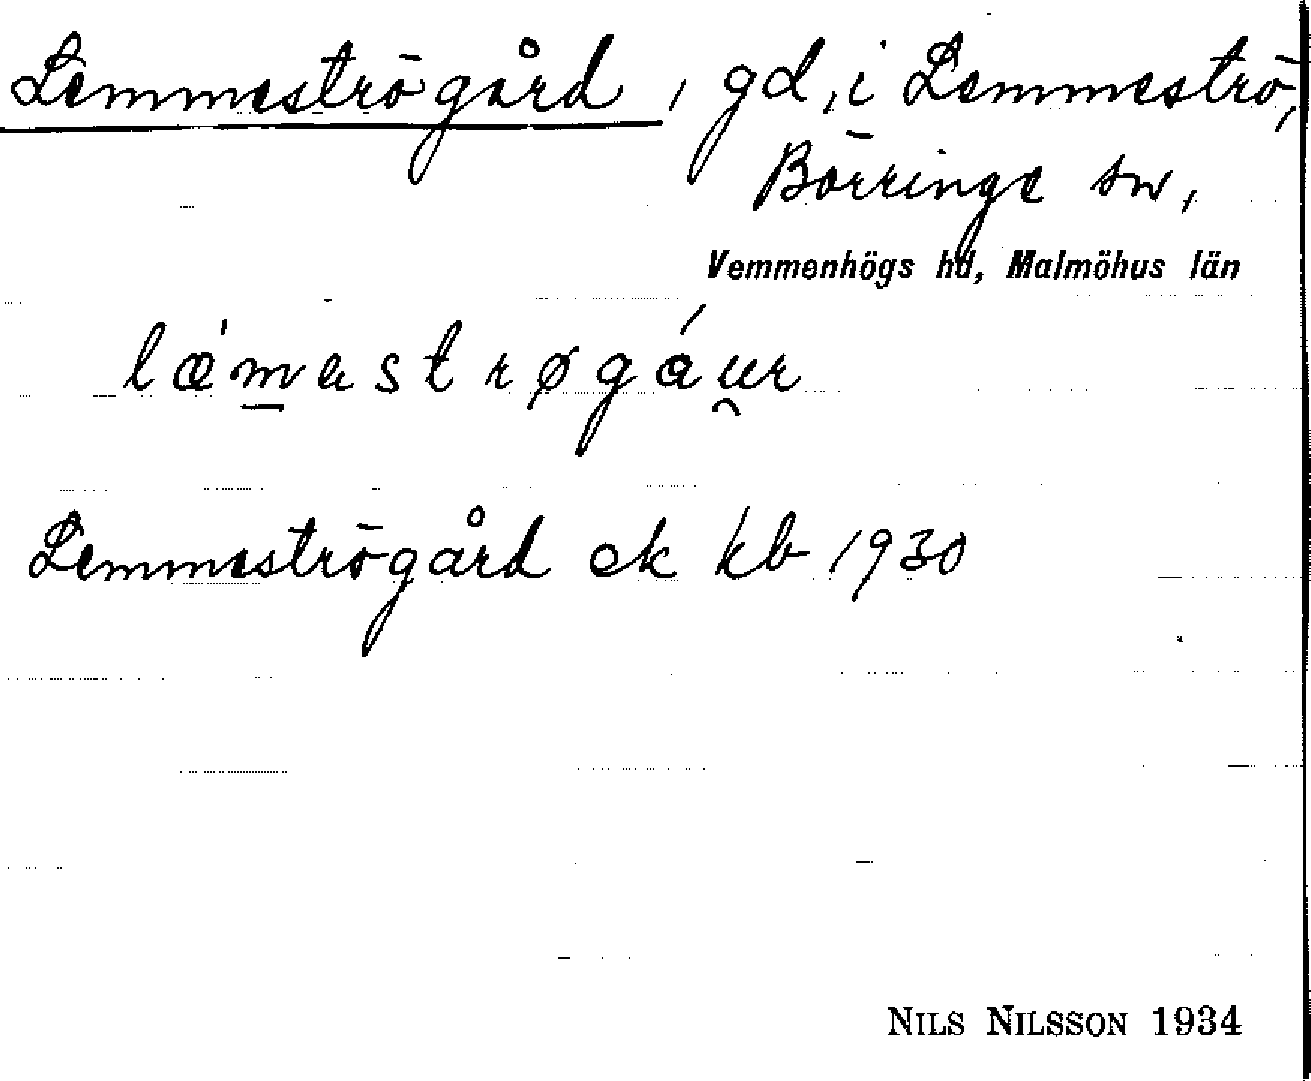 Lemmeströgård, gd, i Lemmeströ,
Börringe sn,
Vemmenhögs hd, Malmöhus län
læ̀m̲astrøgáu̯r
Lemmeströgård ek kb 1930
NILS NILSSON 1934